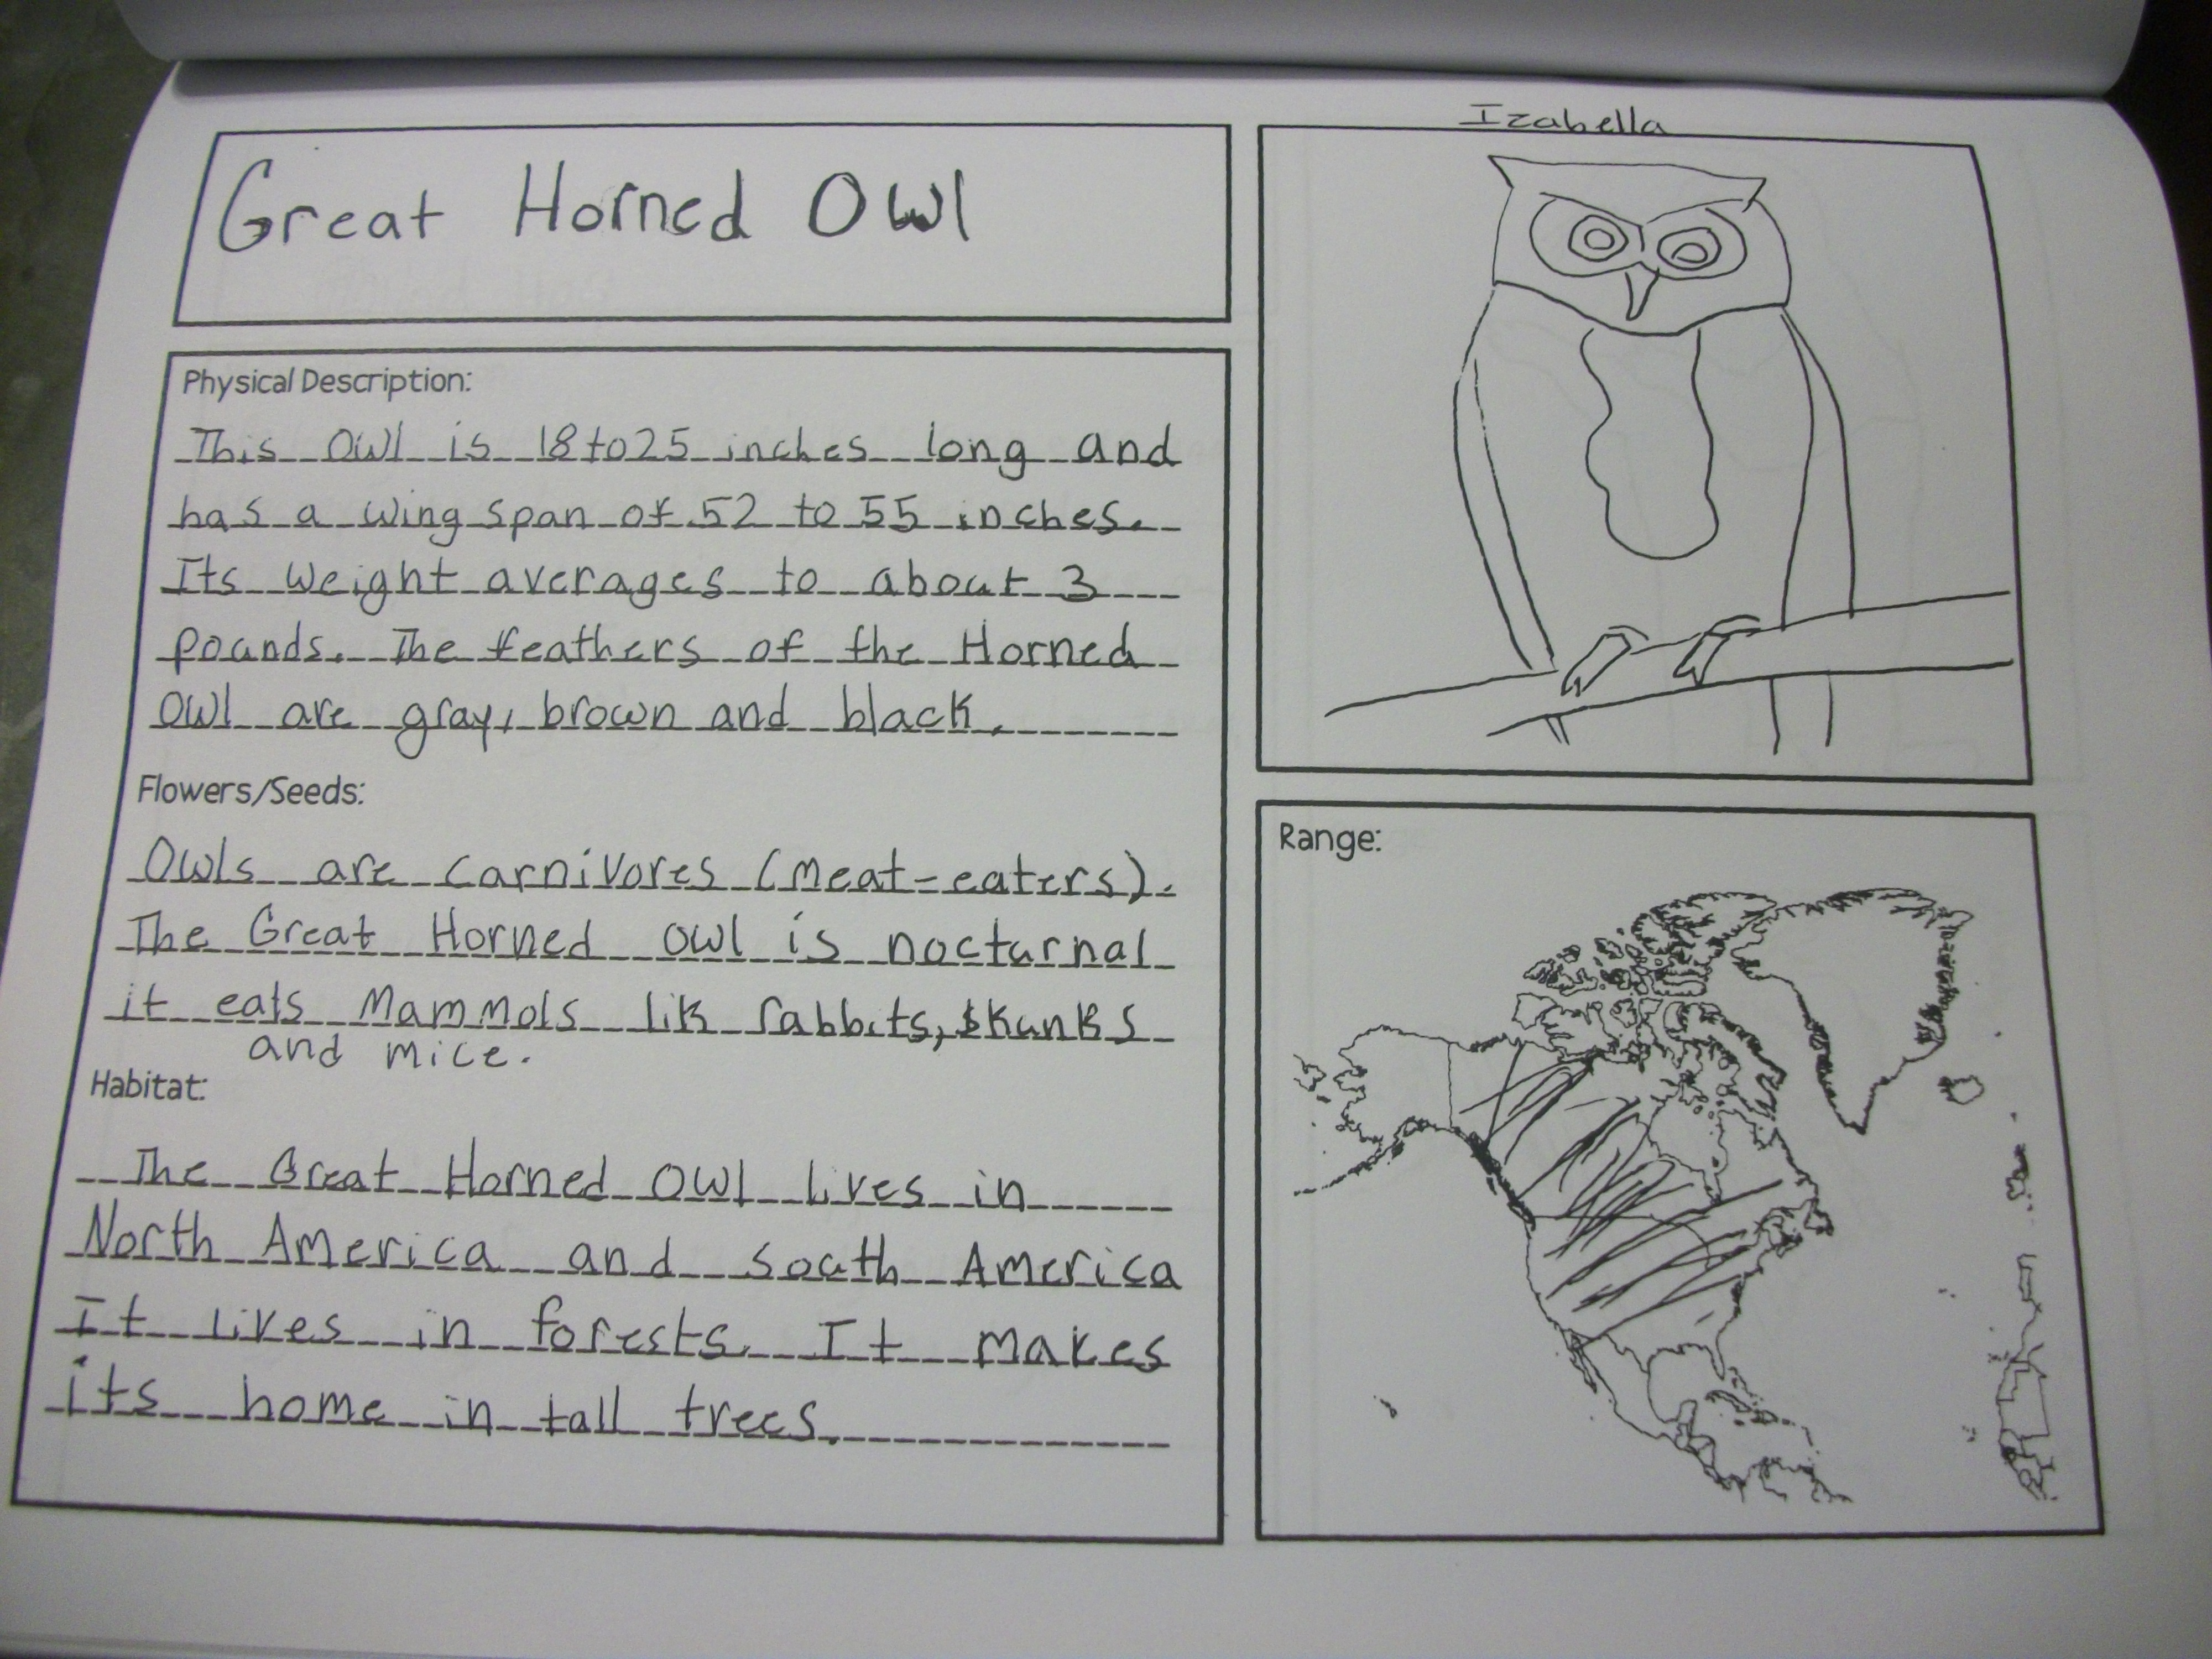 Izabella
Great Horned Owl
Physical Description:
This Owl is 18 to 25 inches long and
has a wing span of 52 to 55 inches.
Its weight averages to about 3
pounds. The feathers of the Horned
Owl are gray, brown and black.
Flowers/Seeds:
Owls are carnivores (meat-eaters).
The Great Horned owl is nocturnal
it eats Mammols lik rabbits, skunks
and mice.
Habitat:
The Great Horned Owl lives in
North America and south America
It lives in forests. It makes
its home in tall trees.
Range: